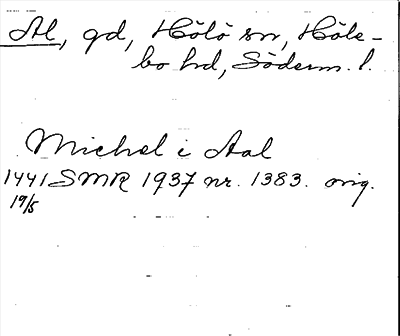 Al, gd, Hölö sn, Höle-
bo hd, Söderm. l.
Michel i Aal
1441 SMR 1937 nr. 1383. orig.
19/5